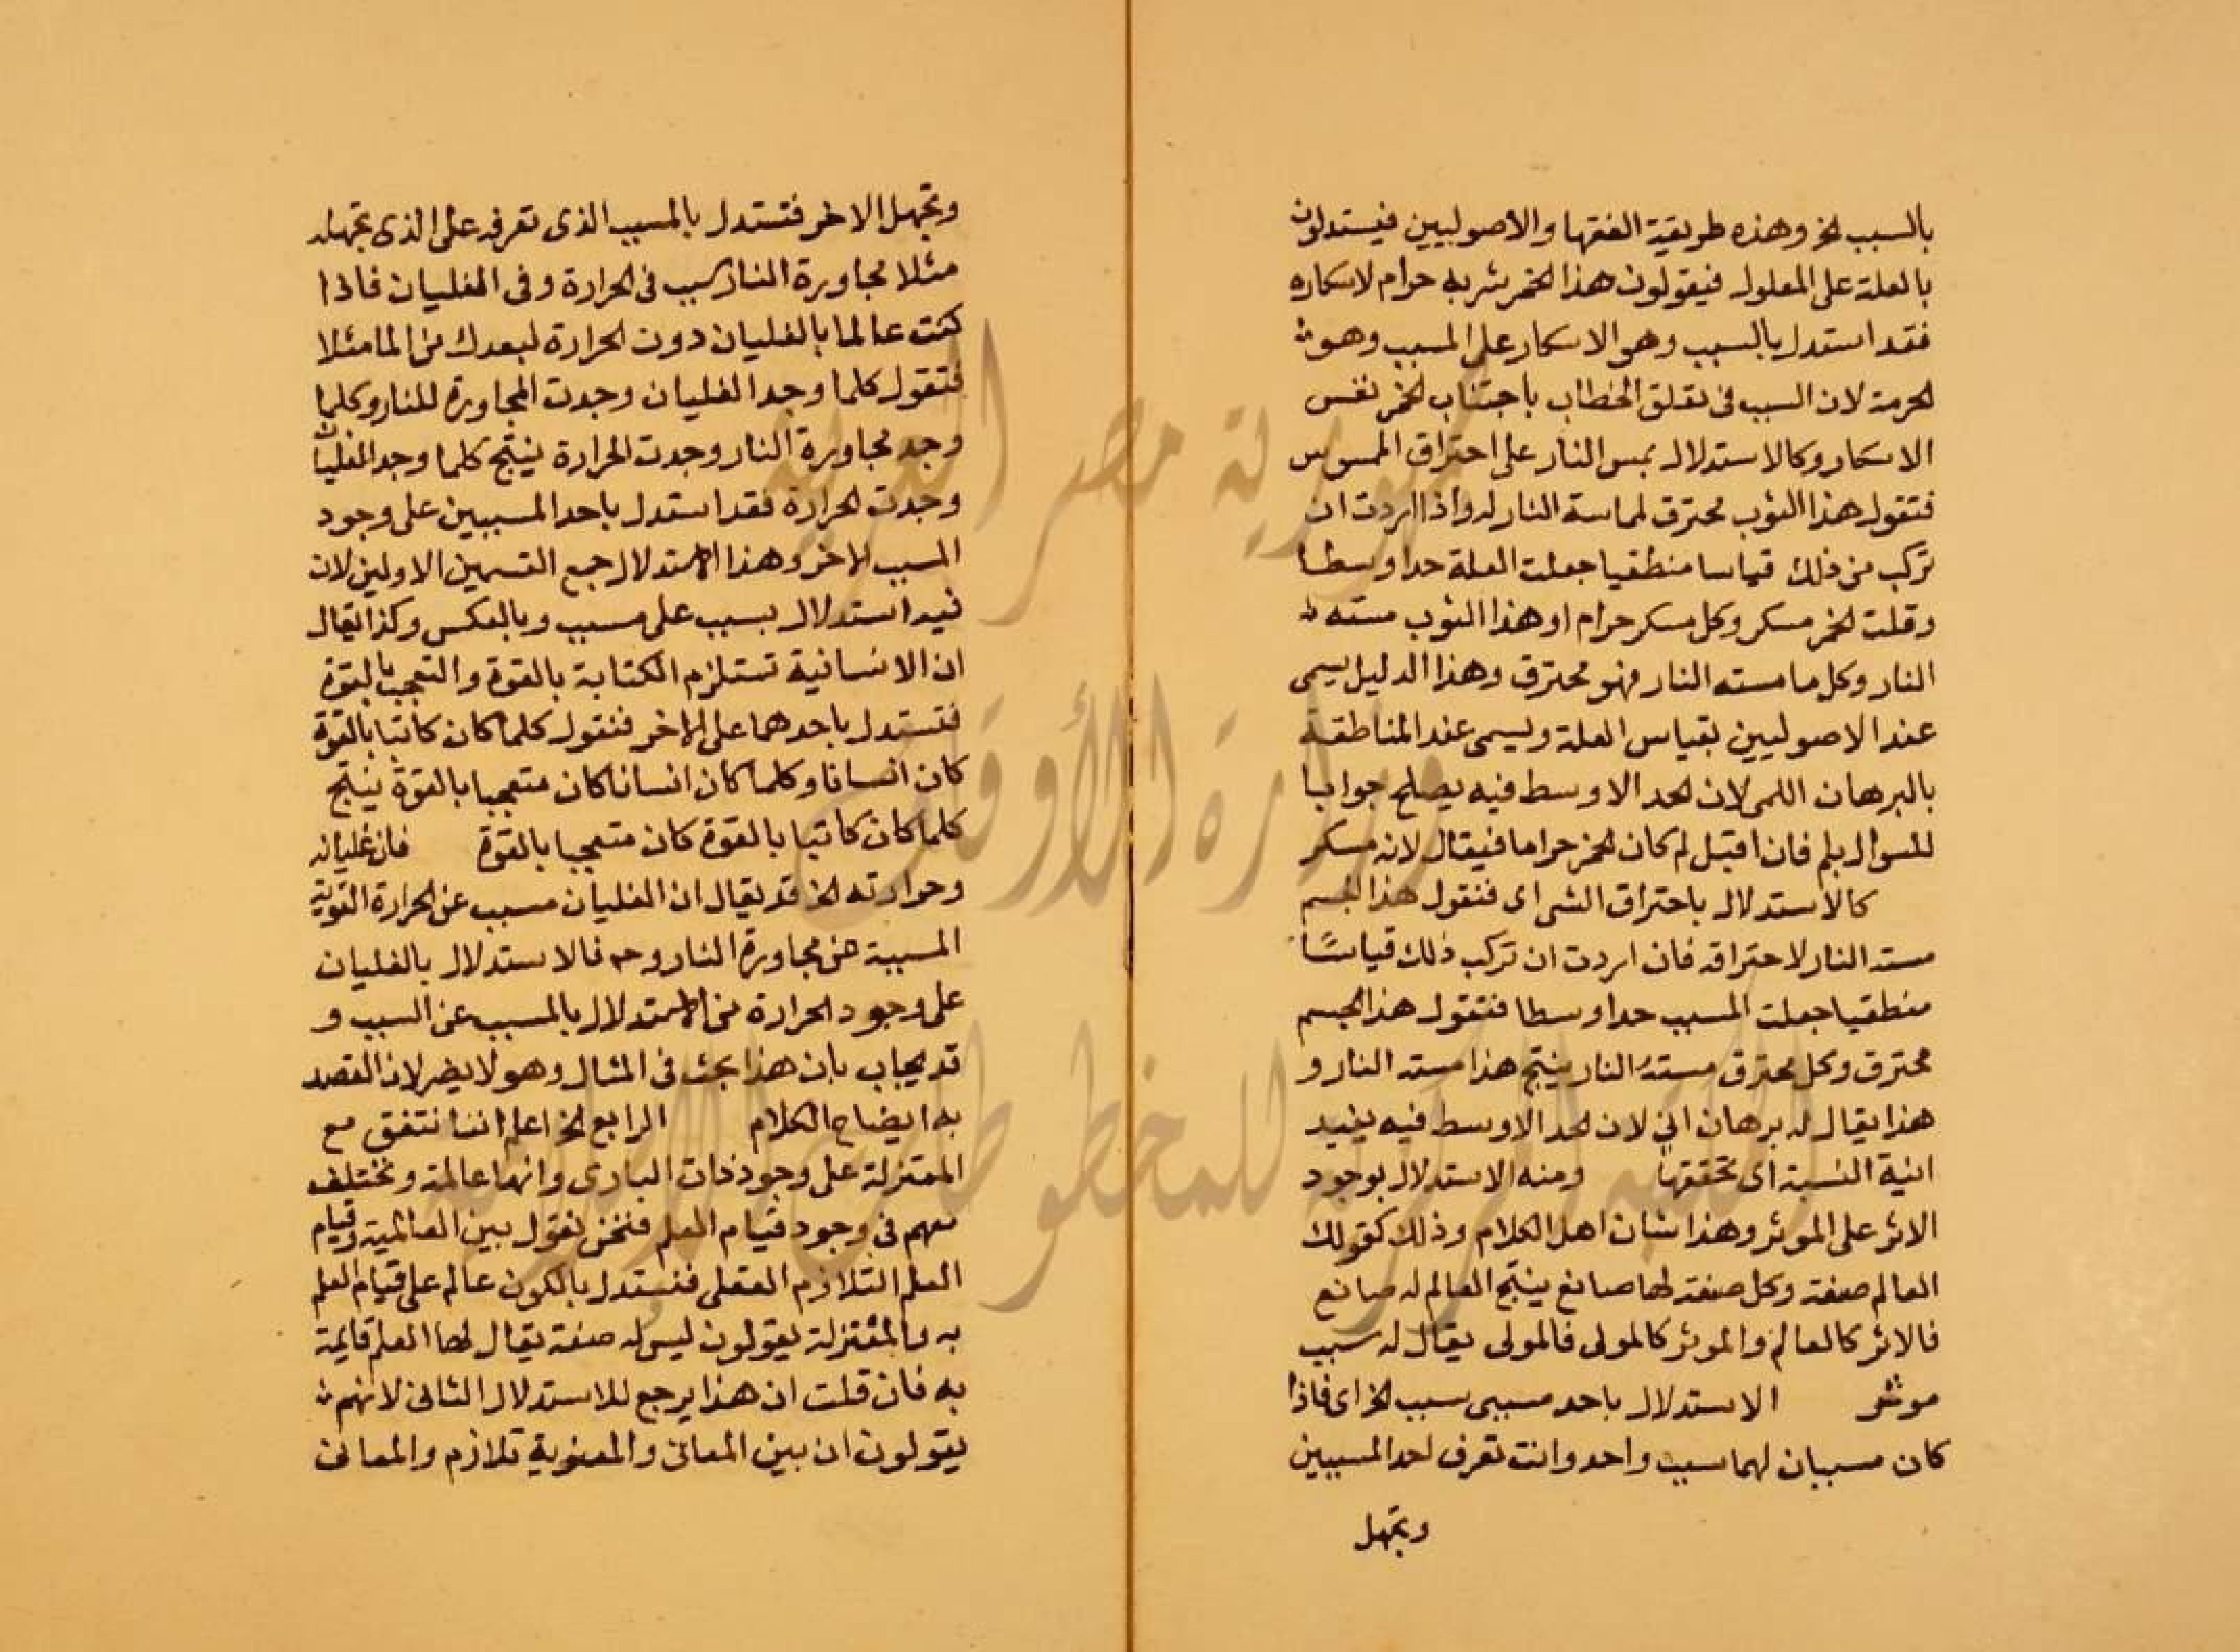 بالسبب الخ وهذه طريقة الفقها والاصوليين فيستدلون
بالعلة على المعلول فيقولون هذا الخمر شربه حرام لاسكاره
فقد استدل بالسبب وهو الاسكار على المسبب وهو
الحرمة لان السبب في تعلق الخطاب باجتناب الخمر نفس
الاسكار وكالاستدلال بمس النار على احتراق الممسوس
فتقول هذا الثوب محترق لماسة النار له واذا اردت ان
تركب من ذلك قياسا منطقيا جعلت العلة حدا وسطا
وقلت الخمر مسكر وكل مسكر حرام او هذا الثوب مسته
النار وكل ما مسته النار فهو محترق وهذا الدليل يسمى
عند الاصوليين بقياس العلة ويسمى عند المناطقة
بالبرهان اللمى لان الحد الاوسط فيه يصلح جوابا
للسوال بلم فان اقيل لم كان الخمر حراما فيقال لانه مسكر
كالاستدلال باحتراق الشى اى فنقول هذا الجسم
مسته النار لاحتراقه فان اردت ان تركب ذلك قياسًا
منطقيا جعلت المسبب حدا وسطا فتقول هذا الجسم
محترق وكل محترق مسته النار ينتج هذا مسته النار و
هذا يقال له برهان اني لان الحد الاوسط فيه يفيد
انية النسبة اى تحققها ومنه الاستدلال بوجود
الاثر على الموثر وهذا شان اهل الكلام وذلك كقولك
العالم صنعة وكل صنعة لها صانع ينتج العالم له صانع
فالاثر كالعالم والموثر كالمولى فالمولى يقال له سبب
موثر الاستدلال باحد مسببى سبب الخ اى فاذا
كان مسببان لهما سبب واحد وانت تعرف احد المسببين
وتجهل
وتجهل الاخر فتستدل بالمسبب الذى تعرفه على الذى تجهله
مثلا مجاورة النار سبب فى الحرارة وفى الغليان فاذا
كنت عالما بالغليان دون الحرارة لبعدك من الما مثلا
فتقول كلما وجد الغليان وجدت المجاورة للنار وكلما
وجد مجاورة النار وجدت الحرارة ينتج كلما وجد الغليان
وجدت الحرارة فقد استدل باحد المسببين على وجود
المسبب الاخر وهذا الاستدلال جمع القسمين الاولين لان
فيه استدلال بسبب على مسبب وبالعكس وكذا يقال
ان الانسانية تستلزم الكتابة بالقوة والتعجب بالقوة
فتستدل باحدهما على الاخر فنقول كلما كان كاتبا بالقوة
كان انسانا وكلما كان انسانا كان متعجبا بالقوة ينتج
كلما كان كاتبا بالقوة كان متعجبا بالقوة فان غليانه
وحرارته الخ قد يقال ان الغليان مسبب عن الحرارة القوية
المسببة عن مجاورة النار وح فالاستدلال بالغليان
على وجود الحرارة من الاستدلال بالمسبب عن السبب و
قد يجاب بان هذا بحث فى المثال وهو لا يضر لان القصد
به ايضاح الكلام الرابع الخ اعلم اننا نتفق مع
المعتزلة على وجود ذات البارى وانها عالمة ونختلف
معهم فى وجود قيام العلم فنحن نقول بين العالمية وقيام
العلم التلازم العقلى فنستدل بالكون عالم على قيام العلم
به والمعتزلة يقولون ليس له صفة يقال لها العلم قايمة
به فان قلت ان هذا يرجع للاستدلال الثانى لانهم
يقولون ان بين المعانى والمعنوية تلازم والمعانى
جمهورية مصر العربية
وزارة الأوقاف
المكتبة المركزية للمخطوطات الإسلامية